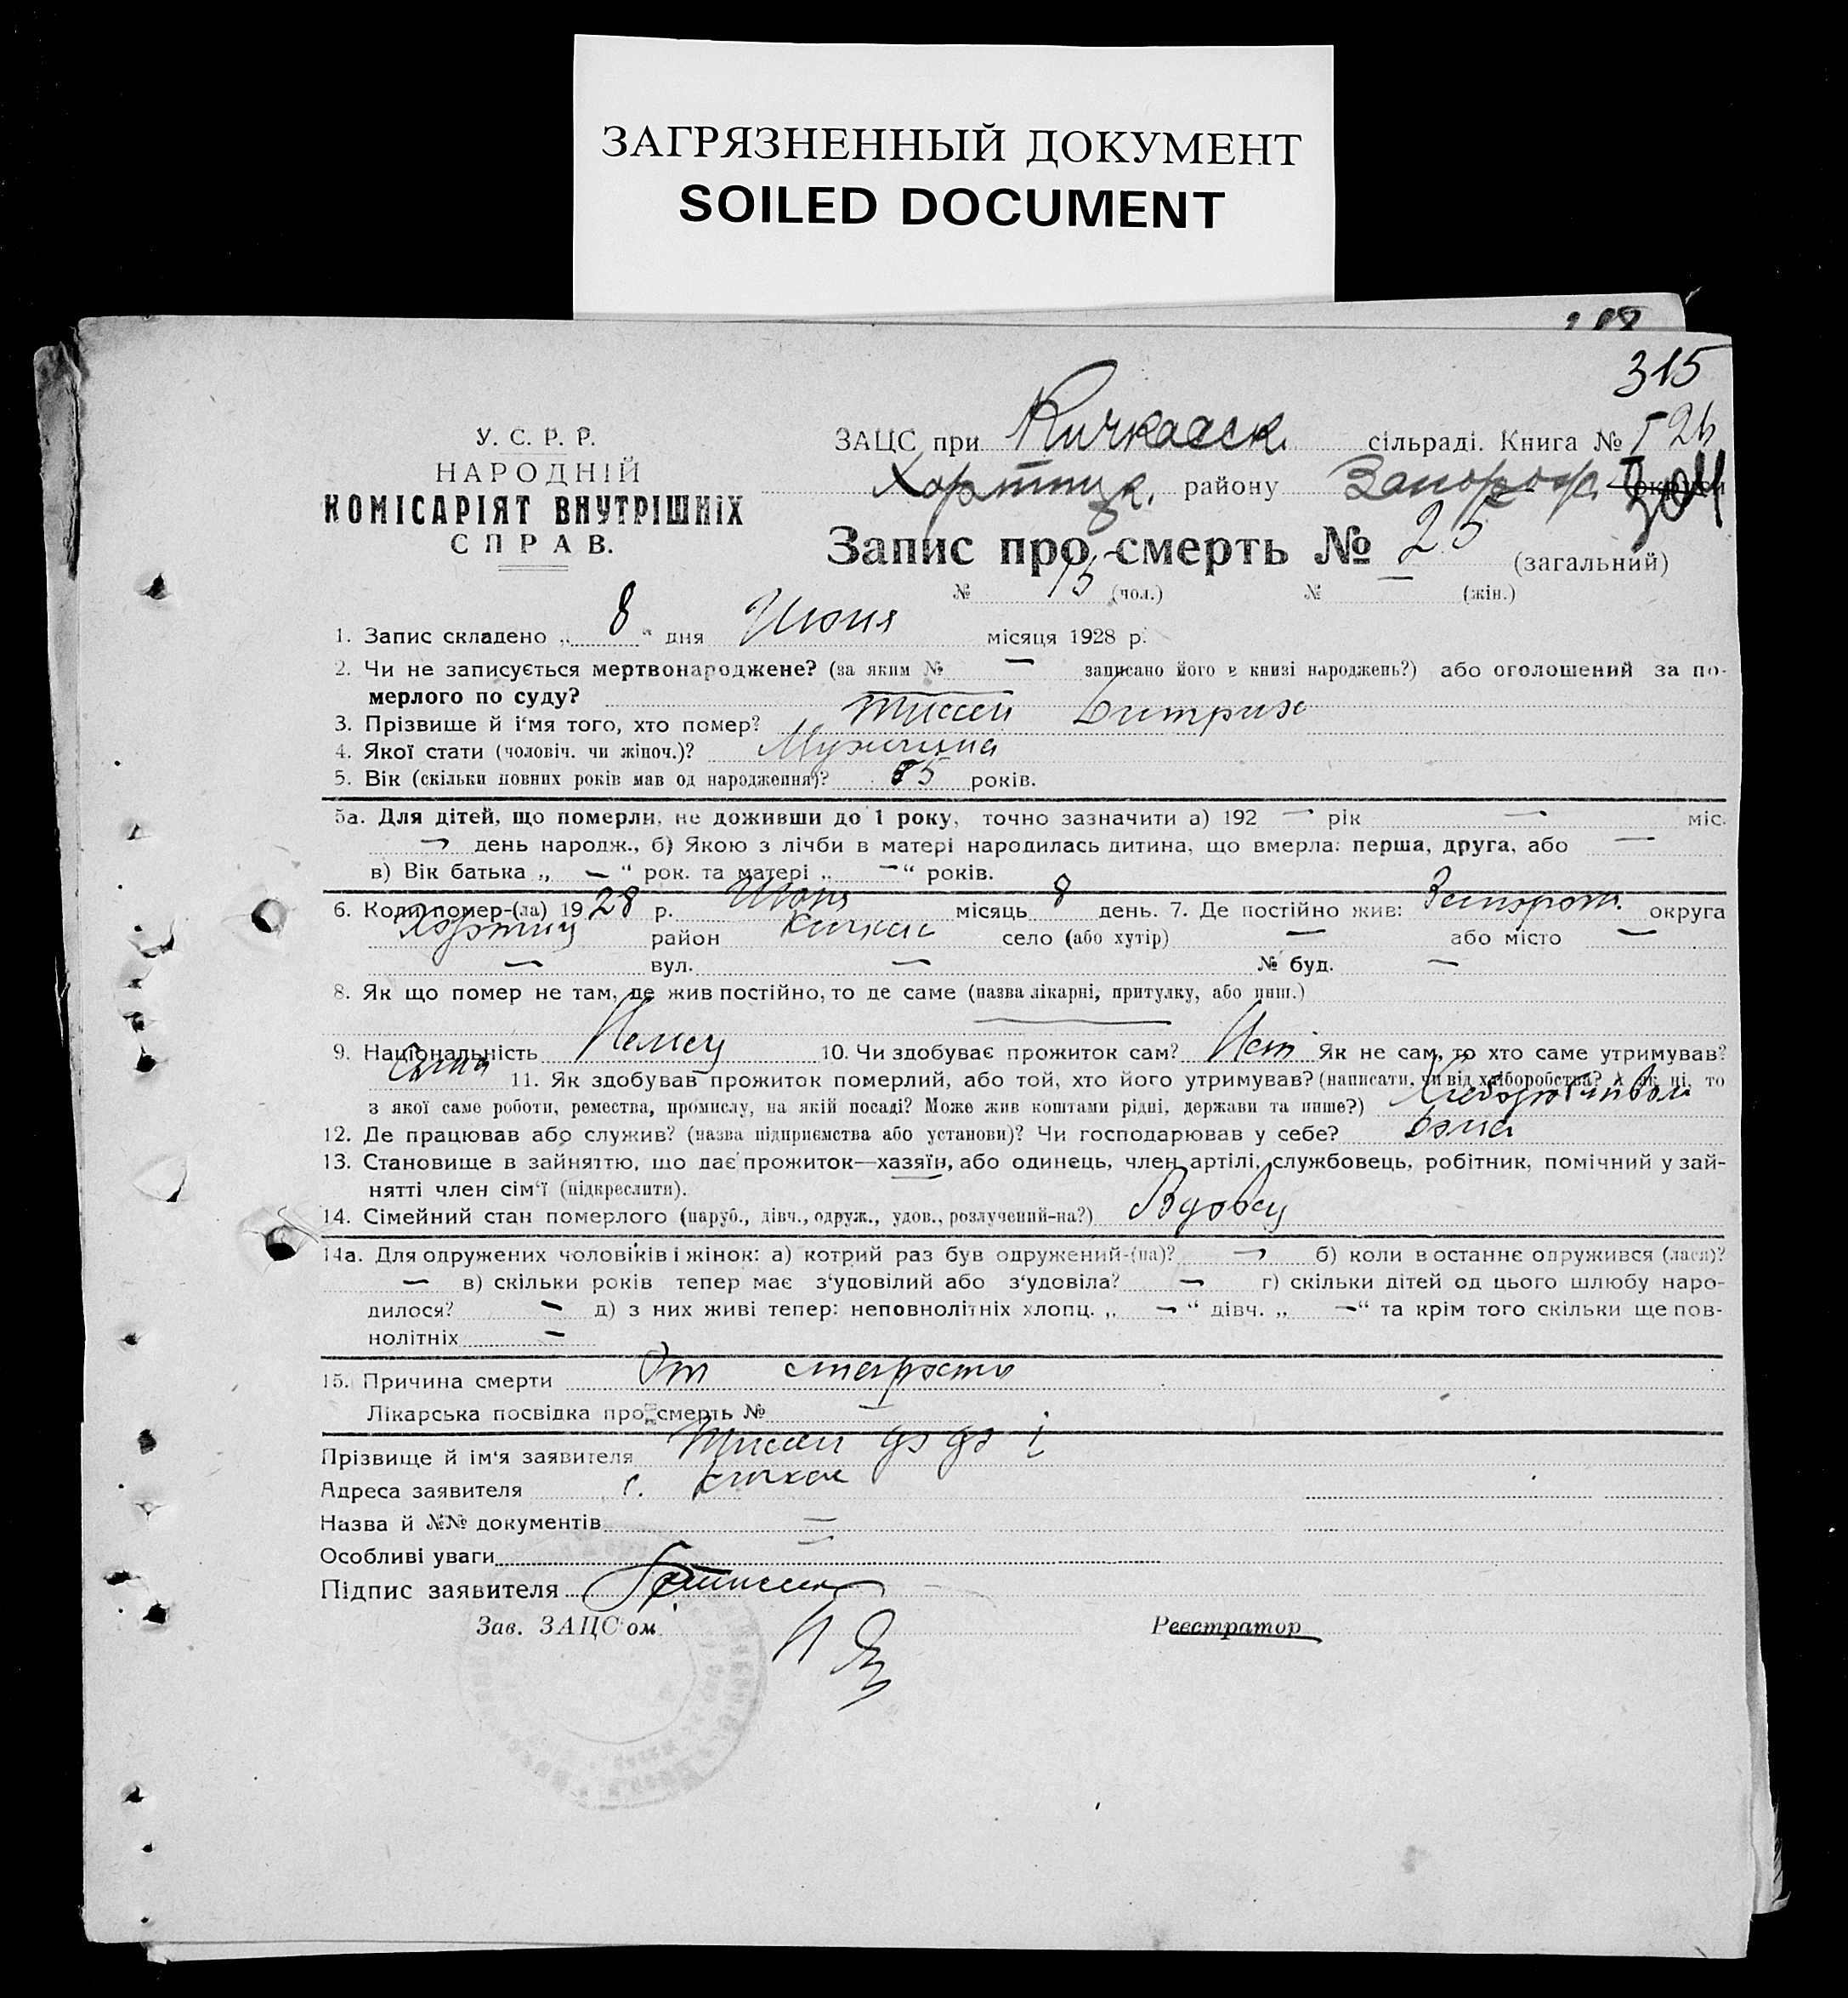 ЗАГРЯЗНЕННЫЙ ДОКУМЕНТ
SOILED DOCUMENT
315
У. С. Р. Р.
НАРОДНІЙ
КОМІСАРІЯТ ВНУТРІШНІХ
СПРАВ.
ЗАЦС при Кичкасск. сільраді. Книга № 
Хортица. району Запорож.
Запис про смерть № 25 (загальний)
№ 15 (чол.) № — (жін.)
1. Запис складено „ 8 " дня Июня місяця 1928 р.
2. Чи не записується мертвонароджене? (за яким № — записано його в книзі народжень?) або оголошений за по-
мерлого по суду? —
3. Прізвище й ім'я того, хто помер? Тиссен Дитрих
4. Якої стати (чоловіч. чи жіноч.)? Мужчина
5. Вік (скільки повних років мав од народження)? 85 років.
5а. Для дітей, що померли, не доживши до 1 року, точно зазначити а) 192 — рік — міс.
— день народж., б) Якою з лічби в матері народилась дитина, що вмерла: перша, друга, або —
в) Вік батька „ — " рок. та матері „ — " років.
6. Коли помер-(ла) 1928 р. Июня місяць 8 день. 7. Де постійно жив: Запорож. округа
Хортиц район Кичкас село (або хутір) — або місто —
— вул. — № буд. —
8. Як що помер не там, де жив постійно, то де саме (назва лікарні, притулку, або инш.)
—
9. Національність Немец 10. Чи здобуває прожиток сам? Нет Як не сам, то хто саме утримував?
Сына 11. Як здобував прожиток померлий, або той, хто його утримував? (написати, чи від хліборобства? А як ні, то
з якої саме роботи, ремества, промислу, на якій посаді? Може жив коштами рідні, держави та инше?)
12. Де працював або служив? (назва підприємства або установи)? Чи господарював у себе? Дома
13. Становище в зайняттю, що дає прожиток—хазяїн, або одинець, член артілі, службовець, робітник, помічний у зай-
нятті член сім'ї (підкреслити).
14. Сімейний стан померлого (паруб., дівч., одруж., удов., розлучений-на?) Вдовец
14а. Для одружених чоловіків і жінок: а) котрий раз був одружений-(на)? — б) коли востаннє одружився (лася)?
— в) скільки років тепер має з'удовілий або з'удовіла? — г) скільки дітей од цього шлюбу наро-
дилося? — д) з них живі тепер: неповнолітніх хлопц. „ — " дівч. „ — " та крім того скільки ще пов-
нолітніх —
15. Причина смерти От старости
Лікарська посвідка про смерть № —
Прізвище й ім'я заявителя Тиссен
Адреса заявителя с. Кичкас
Назва й №№ документів —
Особливі уваги
Підпис заявителя
Зав. ЗАЦС'ом
Реєстратор